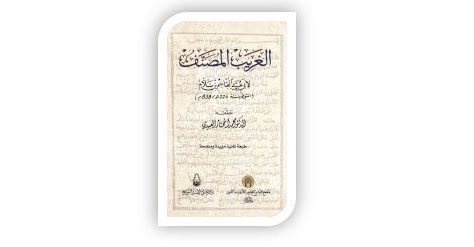 الغريب المصنف
لأبي عبيد القاسم بن سلام
(المتوفى سنة 224هـ/838م)
حققه
الدكتور محمد المختار العبيدي
طبعة ثانية مزيدة ومنقحة